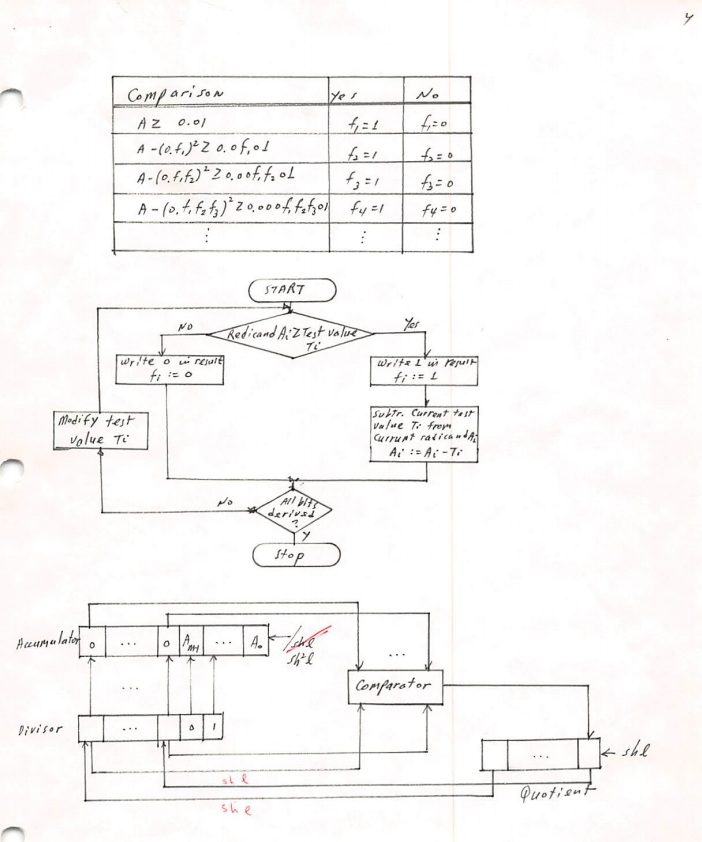 4
Comparison Yes No
A ≥ 0.01 f₁=1 f₁=0
A-(0.f₁)² ≥ 0.0f₁01 f₂=1 f₂=0
A-(0.f₁f₂)² ≥ 0.00f₁f₂01 f₃=1 f₃=0
A-(0.f₁f₂f₃)² ≥ 0.000f₁f₂f₃01 f₄=1 f₄=0
⋮ ⋮ ⋮
START
NO Redicand Ai ≥ Test value Yes
Ti
Write 0 in result
fi := 0
Write 1 in result
fi := 1
Modify test
value Ti
Subtr. Current test
value Ti from
Current radicand Ai
Ai := Ai - Ti
No
All bits
derived
?
Y
Stop
Accumulator 0 ... 0 Am-1 ... A₀ shl
sh²l
...
...
Comparator
Divisor ... 0 1
... shl
Quotient
shl
shl